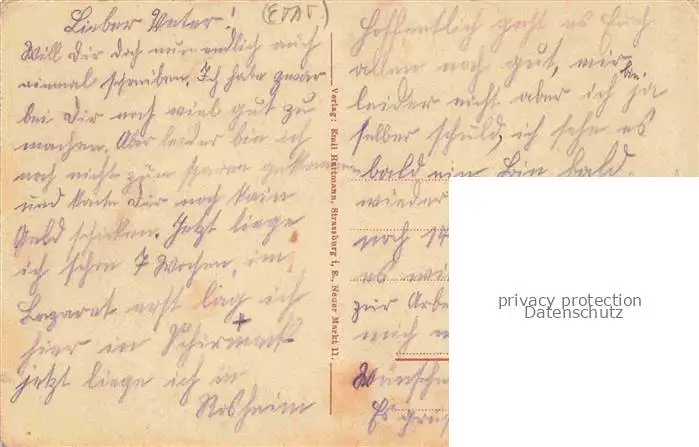 Lieber Vater!
Will Dir doch nun endlich auch
einmal schreiben. Ich habe zwar
bei Dir noch viel gut zu
machen. Aber leider bin ich
noch nicht zum sparen gekommen
und kante Dir noch kain
Geld schicken. Jetzt liege
ich schon 7 Wochen, im
Lazaret erst lag ich
hier in Schirmeck
jetzt liege ich in
Rosheim
Verlag: Emil Hartmann, Strassburg i. E., Neuer Markt 11.
Hoffentlich geht es Euch
allen noch gut, mir
leider nicht aber ich bin ja
selber schuld, ich sehe es
bald ein. Bin bald
wieder
noch 14
es wi
zur Arbe
mich
Wünsche
Es grüs
privacy protection
Datenschutz